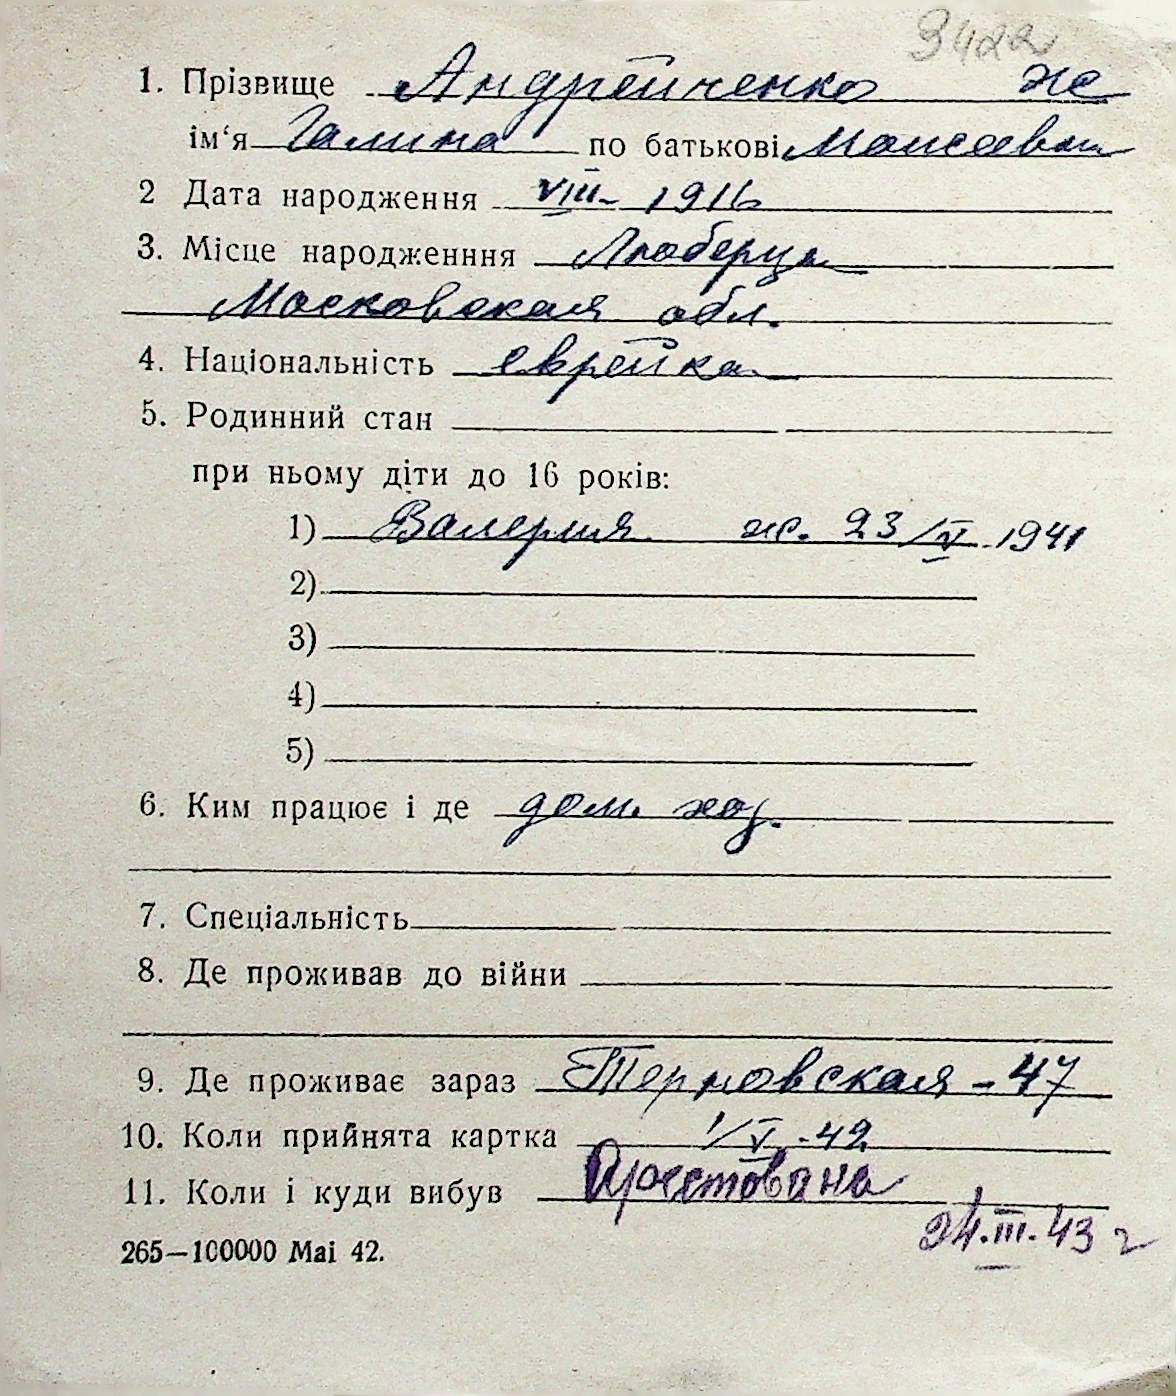 3422
1. Прізвище Андрейченко ж
ім‘я Галина по батькові Моисеевна
2 Дата народження VIII - 1916
3. Місце народженння Люберцы
Московская обл.
4. Національність еврейка
5. Родинний стан
при ньому діти до 16 років:
1) Валерия ж. 23/V 1941
2)
3)
4)
5)
6. Ким працює і де дом. хоз.
7. Спеціальність
8. Де проживав до війни
9. Де проживає зараз Терновская - 47
10. Коли прийнята картка 1/V - 42
11. Коли і куди вибув Арестована
24.III.43 г
265—100000 Mai 42.